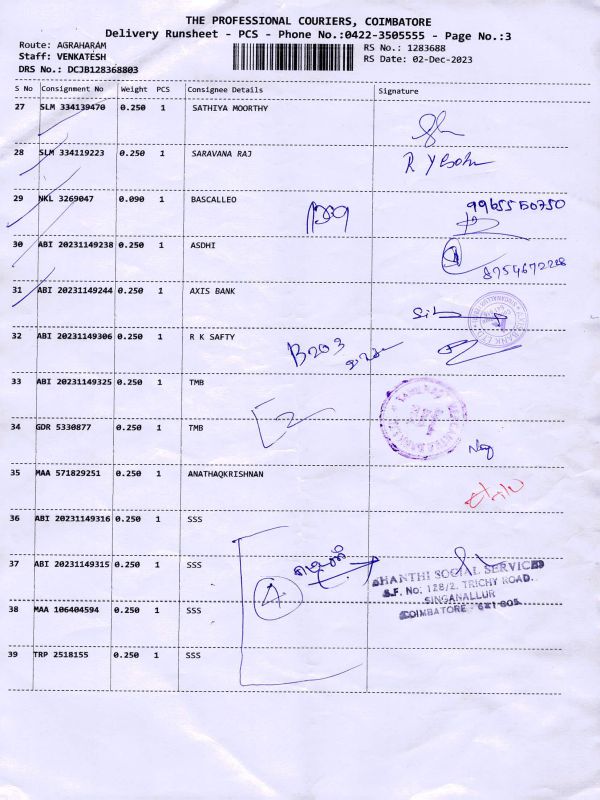 THE PROFESSIONAL COURIERS, COIMBATORE
Delivery Runsheet - PCS - Phone No.:0422-3505555 - Page No.:3
Route: AGRAHARAM
RS No.: 1283688
Staff: VENKATESH
RS Date: 02-Dec-2023
DRS No.: DCJB128368803
S No Consignment No Weight PCS Consignee Details Signature
27 SLM 334139470 0.250 1 SATHIYA MOORTHY
28 SLM 334119223 0.250 1 SARAVANA RAJ
29 NKL 3269047 0.090 1 BASCALLEO
9965550750
30 ABI 20231149238 0.250 1 ASDHI
8754672228
31 ABI 20231149244 0.250 1 AXIS BANK
32 ABI 20231149306 0.250 1 R K SAFTY
B203
33 ABI 20231149325 0.250 1 TMB
34 GDR 5330877 0.250 1 TMB
35 MAA 571829251 0.250 1 ANATHAQKRISHNAN
36 ABI 20231149316 0.250 1 SSS
37 ABI 20231149315 0.250 1 SSS
SHANTHI SOCIAL SERVICES
S.F. No: 128/2, TRICHY ROAD,
SINGANALLUR
COIMBATORE - 641 005
4
38 MAA 106404594 0.250 1 SSS
39 TRP 2518155 0.250 1 SSS